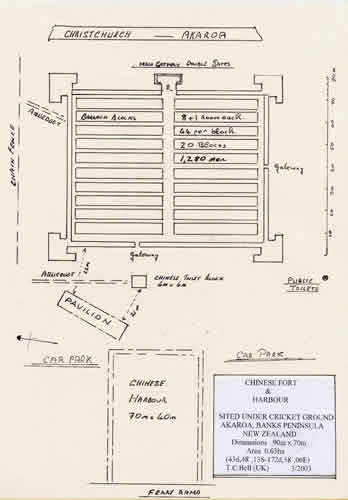 CHRISTCHURCH — AKAROA
MAIN GATEWAY DOUBLE GATES
AQUEDUCT
CHAIN FENCE
BARRACK BLOCKS
8+1 ROOM EACH
64 per block
20 BLOCKS
1,280 men
Gateway
Gateway
AQUEDUCT
CHINESE TOILET BLOCK
6m x 6m
PUBLIC
TOILETS
PAVILION
CAR PARK
CAR PARK
CHINESE
HARBOUR
70m x 40m
CHINESE FORT
&
HARBOUR
SITED UNDER CRICKET GROUND
AKAROA, BANKS PENINSULA
NEW ZEALAND
Dimensions :90m x 70m
Area: 0.63ha
(43d,48',13S-172d,58',06E)
T.C.Bell (UK) 3/2003
FERRY ROAD